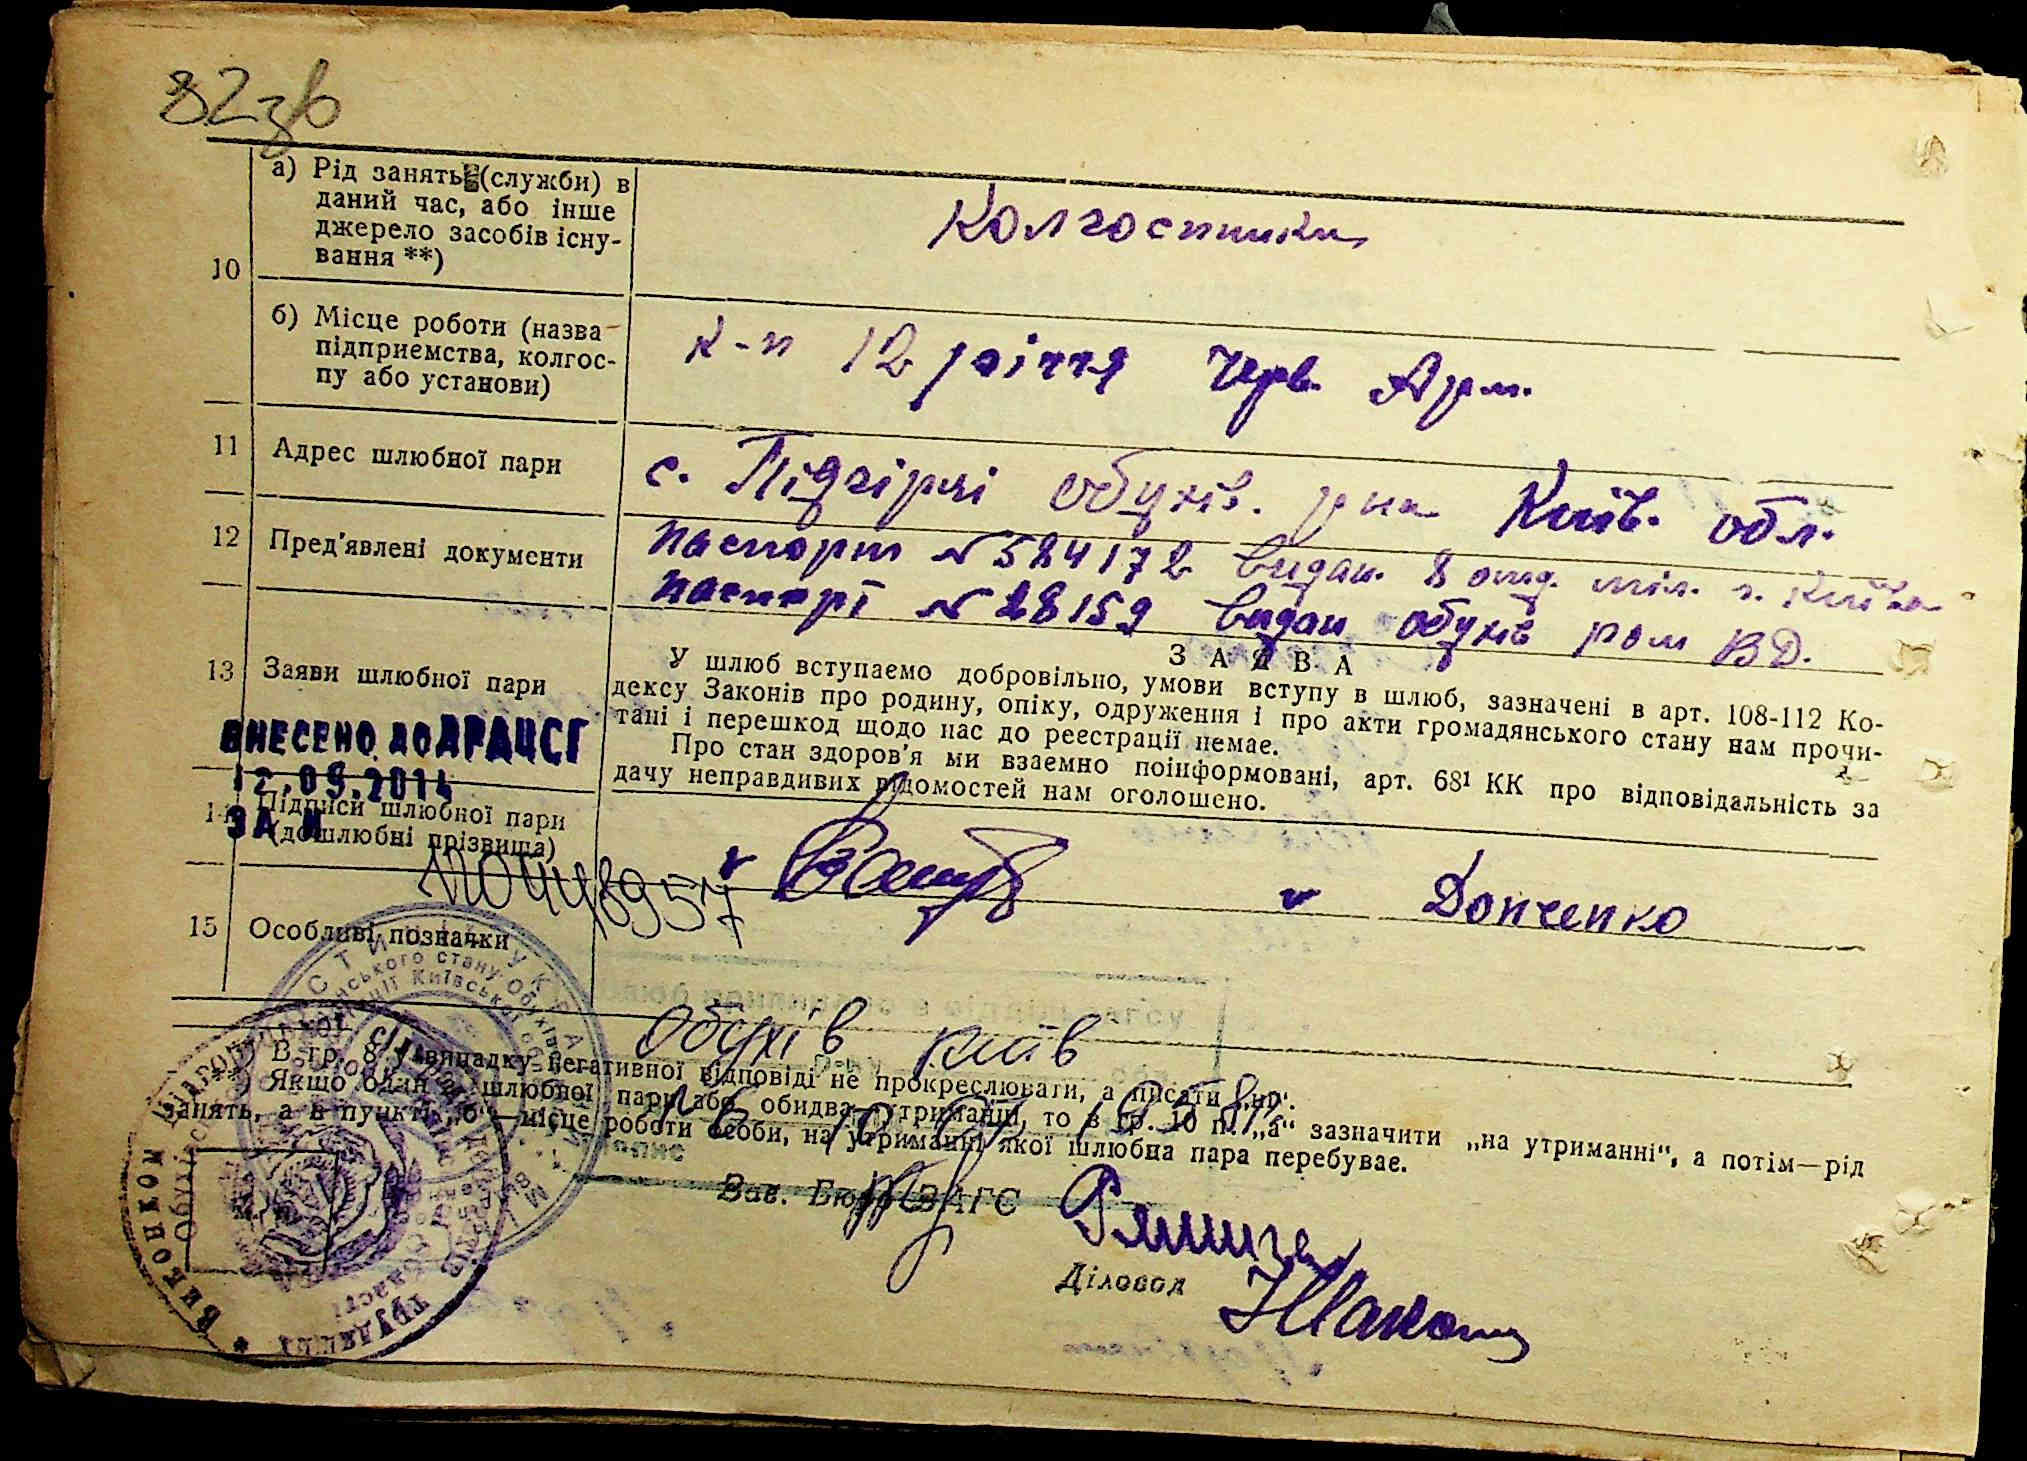 82зв
10
а) Рід занять (служби) в
даний час, або інше
джерело засобів існу-
вання **)
Колгоспники
б) Місце роботи (назва
підприємства, колгос-
пу або установи)
к-п 12 річчя Черв. Арм.
11 Адрес шлюбної пари
с. Підгірці обухів. р-на Київ. обл.
12 Пред'явлені документи
паспорт № 584172 видан. 8 отд. міл. г. Києва
паспорт № 28159 видан обухів ром ВД.
13 Заяви шлюбної пари
ЗАЯВА
У шлюб вступаємо добровільно, умови вступу в шлюб, зазначені в арт. 108-112 Ко-
дексу Законів про родину, опіку, одруження і про акти громадянського стану нам прочи-
тані і перешкод щодо нас до реєстрації немає.
Про стан здоров'я ми взаємно поінформовані, арт. 68¹ КК про відповідальність за
дачу неправдивих відомостей нам оголошено.
ВНЕСЕНО ДО ДРАЦСГ
12.09.2014
ЗА №
14 Підписи шлюбної пари
(дошлюбні прізвища)
Донченко
15 Особливі позначки
Обухів Київ
*) В гр. 8 у випадку негативної відповіді не прокреслювати, а писати „ні“.
**) Якщо один із шлюбної пари або обидва утриманці, то в гр. 10 п. „а“ зазначити „на утриманні“, а потім—рід
занять, а в пункті „б“—місце роботи особи, на утриманні якої шлюбна пара перебуває.
Зав. Бюро ЗАГС
Діловод